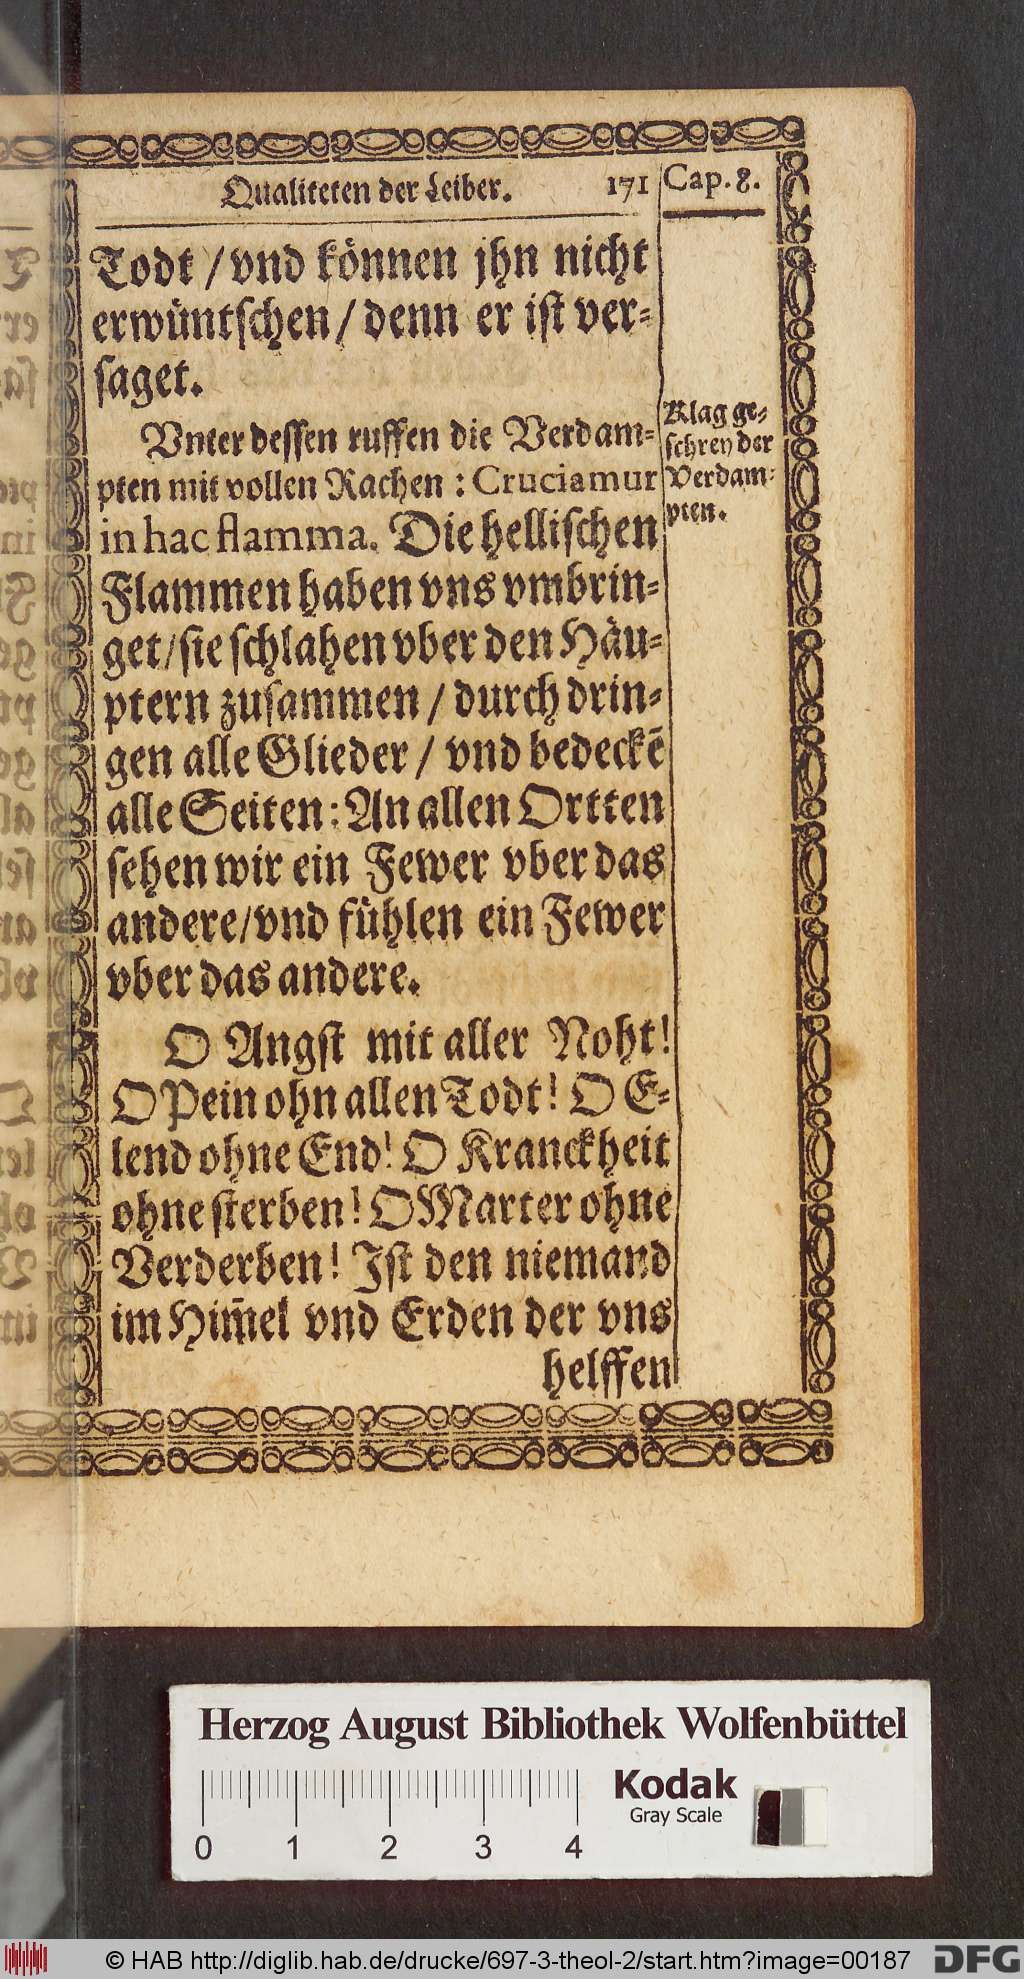 Qualiteten der Leiber. 171 Cap. 8.
Todt / vnd können jhn nicht
erwüntschen / denn er ist ver-
saget.
Vnter dessen ruffen die Verdam-
pten mit vollen Rachen : Cruciamur
in hac flamma. Die hellischen
Flammen haben vns vmbrin-
get / sie schlahen vber den Häu-
ptern zusammen / durch drin-
gen alle Glieder / vnd bedeckē
alle Seiten : An allen Ortten
sehen wir ein Fewer vber das
andere / vnd fühlen ein Fewer
vber das andere.
O Angst mit aller Noht!
O Pein ohn allen Todt! O E-
lend ohne End! O Kranckheit
ohne sterben! O Marter ohne
Verderben! Ist den niemand
im Him̄el vnd Erden der vns
helffen
Klag ge-
schrey der
Verdam-
pten.
Herzog August Bibliothek Wolfenbüttel
Kodak
Gray Scale
0 1 2 3 4
© HAB http://diglib.hab.de/drucke/697-3-theol-2/start.htm?image=00187 DFG